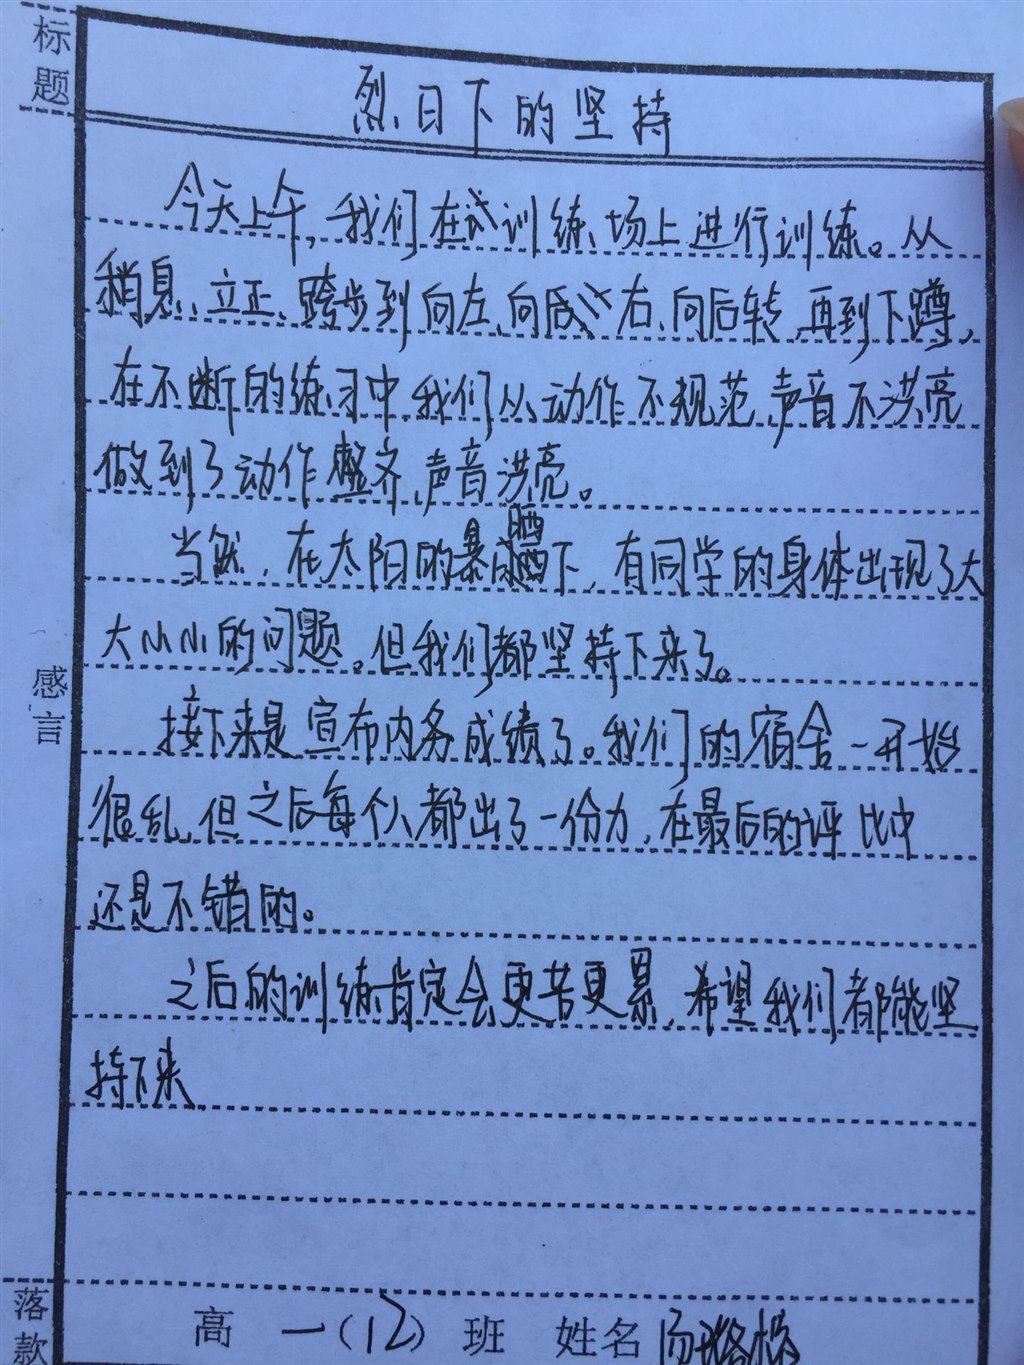 标题
烈日下的坚持
今天上午,我们在训练场上进行训练。从
稍息、立正、跨步到向左、向右、向后转,再到下蹲,
在不断的练习中,我们从动作不规范,声音不洪亮
做到了动作整齐,声音洪亮。
当然,在太阳的暴晒下,有同学的身体出现了大
大小小的问题。但我们都坚持下来了。
感言
接下来是宣布内务成绩了。我们的宿舍一开始
很乱,但之后每个人都出了一份力,在最后的评比中
还是不错的。
之后的训练肯定会更苦更累,希望我们都能坚
持下来
落款
高一(12)班 姓名